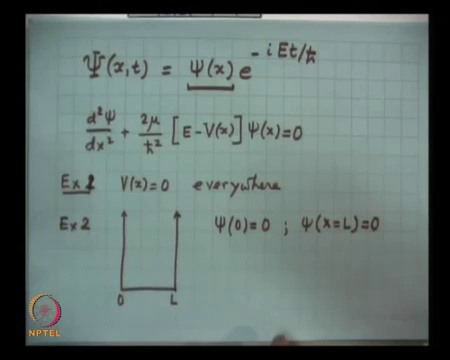 Ψ(x,t) = ψ(x) e^{-iEt/ħ}
d²ψ/dx² + 2μ/ħ² [E-V(x)] ψ(x)=0
Ex 1 V(x)=0 everywhere
Ex 2 ψ(0)=0 ; ψ(x=L)=0
0 L
NPTEL